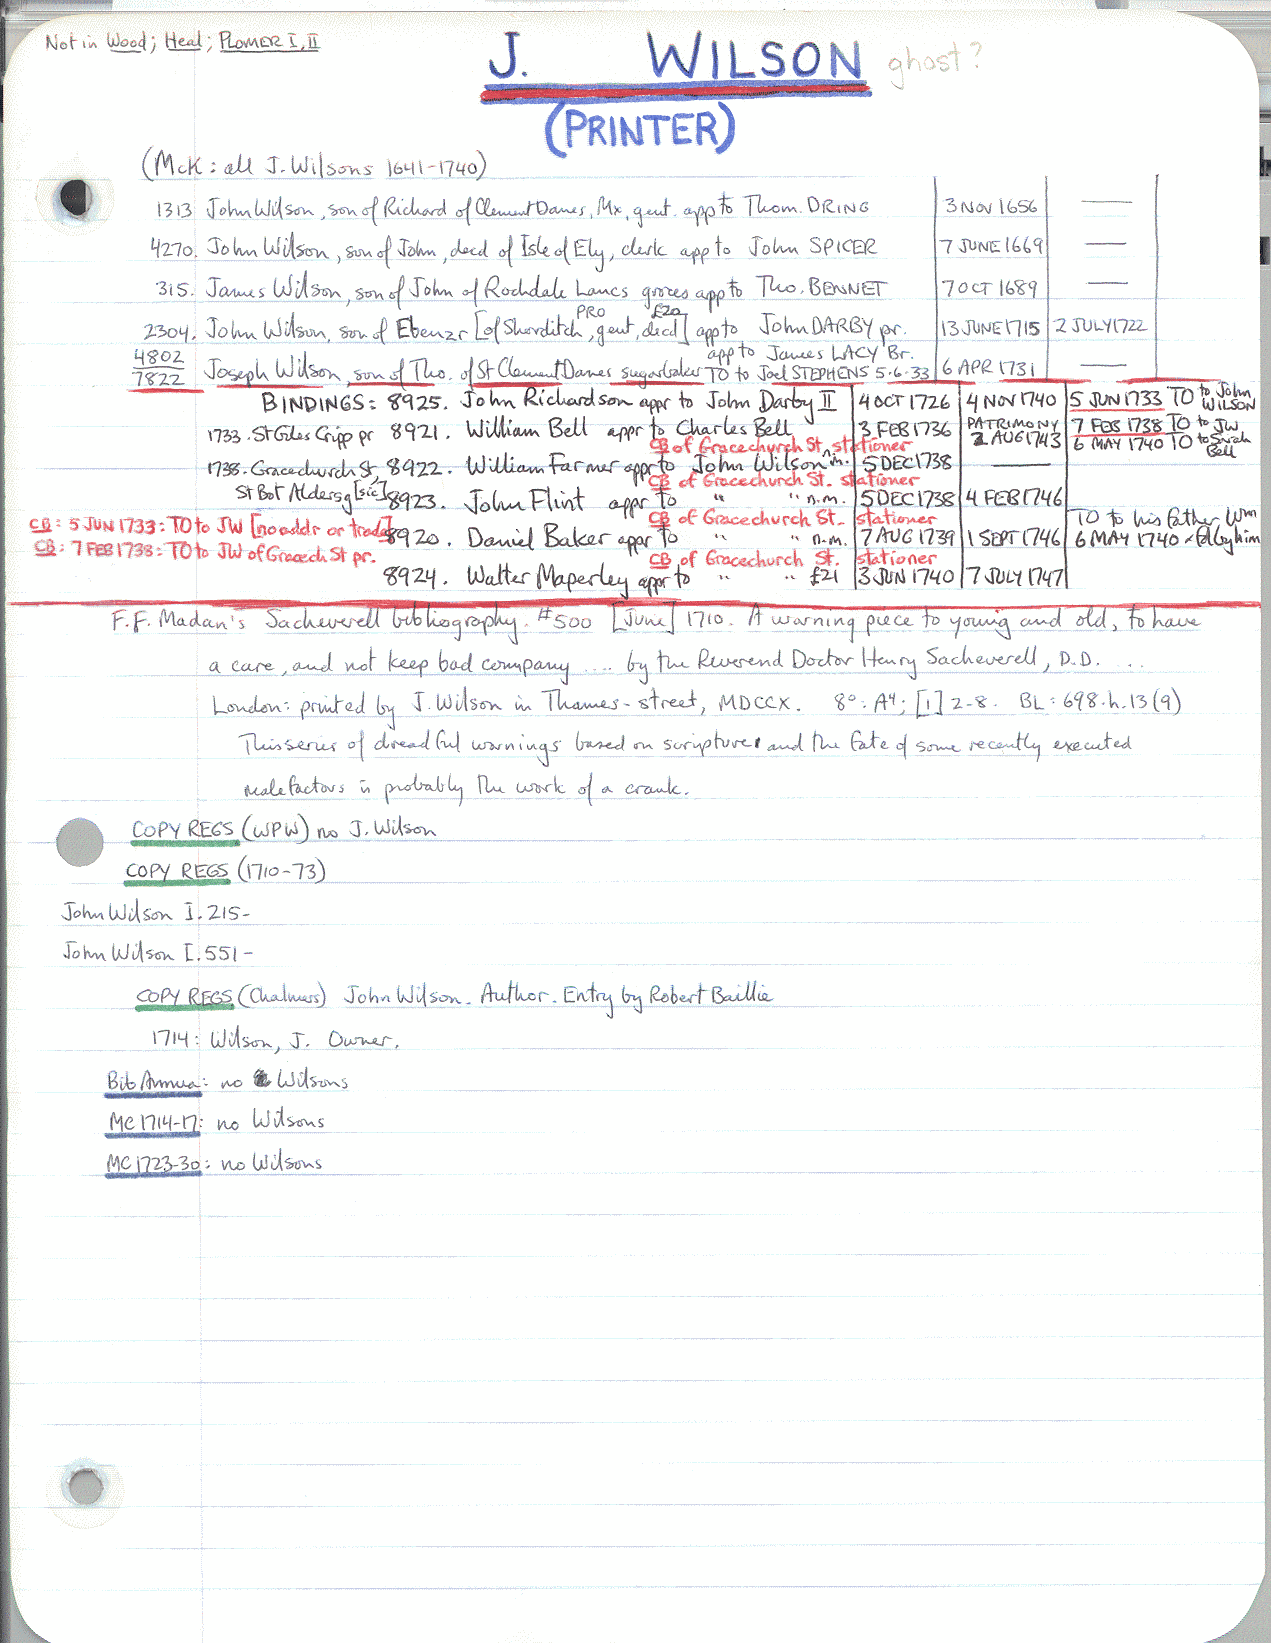 Not in Wood; Heal; PLOMER I, II
J. WILSON ghost?
(PRINTER)
(McK: all J. Wilsons 1641-1740)
1313 John Wilson, son of Richard of Clement Danes, Mx, gent. app to Thom. DRING 3 NOV 1656 —
4270. John Wilson, son of John, decd of Isle of Ely, clerk app to John SPICER 7 JUNE 1669 —
315. James Wilson, son of John of Rochdale Lancs grocer app to Tho. BENNET 7 OCT 1689 —
PRO £20
2304. John Wilson, son of Ebenzr [of Shorditch, gent, decd] app to John DARBY pr. 13 JUNE 1715 2 JULY 1722
4802 app to James LACY Br.
7822 Joseph Wilson, son of Tho. of St Clement Danes sugarbaker TO to Joel STEPHENS 5.6.33 6 APR 1731 —
BINDINGS: 8925. John Richardson appr to John Darby II 4 OCT 1726 4 NOV 1740 5 JUN 1733 TO to John WILSON
1733. St Giles Cripp pr 8921. William Bell appr to Charles Bell 3 FEB 1736 PATRIMONY 2 AUG 1743 7 FEB 1738 TO to JW
6 MAY 1740 TO to Sarah Bell
CB of Gracechurch St, stationer
1738. Gracechurch St, 8922. William Farmer appr to John Wilson n.m. 5 DEC 1738 —
CB of Gracechurch St. stationer
St Bot Aldersg [sic] 8923. John Flint appr to " " n.m. 5 DEC 1738 4 FEB 1746
CB of Gracechurch St. stationer
CB: 5 JUN 1733: TO to JW [no addr or trade] 8920. Daniel Baker appr to " " n.m. 7 AUG 1739 1 SEPT 1746 TO to his father Wm 6 MAY 1740
CB: 7 FEB 1738: TO to JW of Gracech St pr.
CB of Gracechurch St. stationer
8924. Walter Maperley appr to " " £21 3 JUN 1740 7 JULY 1747
F.F. Madan's Sacheverell bibliography. #500 [June] 1710. A warning piece to young and old, to have
a care, and not keep bad company .... by the Reverend Doctor Henry Sacheverell, D.D. ...
London: printed by J. Wilson in Thames-street, MDCCX. 8°: A⁴; [1] 2-8. BL: 698.h.13(9)
This series of dreadful warnings based on scripture and the fate of some recently executed
malefactors is probably the work of a crank.
COPY REGS (WPW) no J. Wilson
COPY REGS (1710-73)
John Wilson I. 215-
John Wilson I. 551-
COPY REGS (Chalmers) John Wilson. Author. Entry by Robert Baillie
1714: Wilson, J. Owner.
Bib Annua: no Wilsons
MC 1714-17: no Wilsons
MC 1723-30: no Wilsons